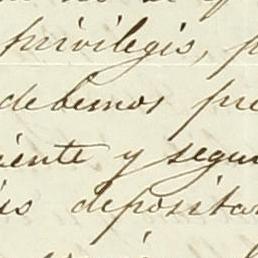 privilegis, p
debemos pre
iente y segur
is depositar